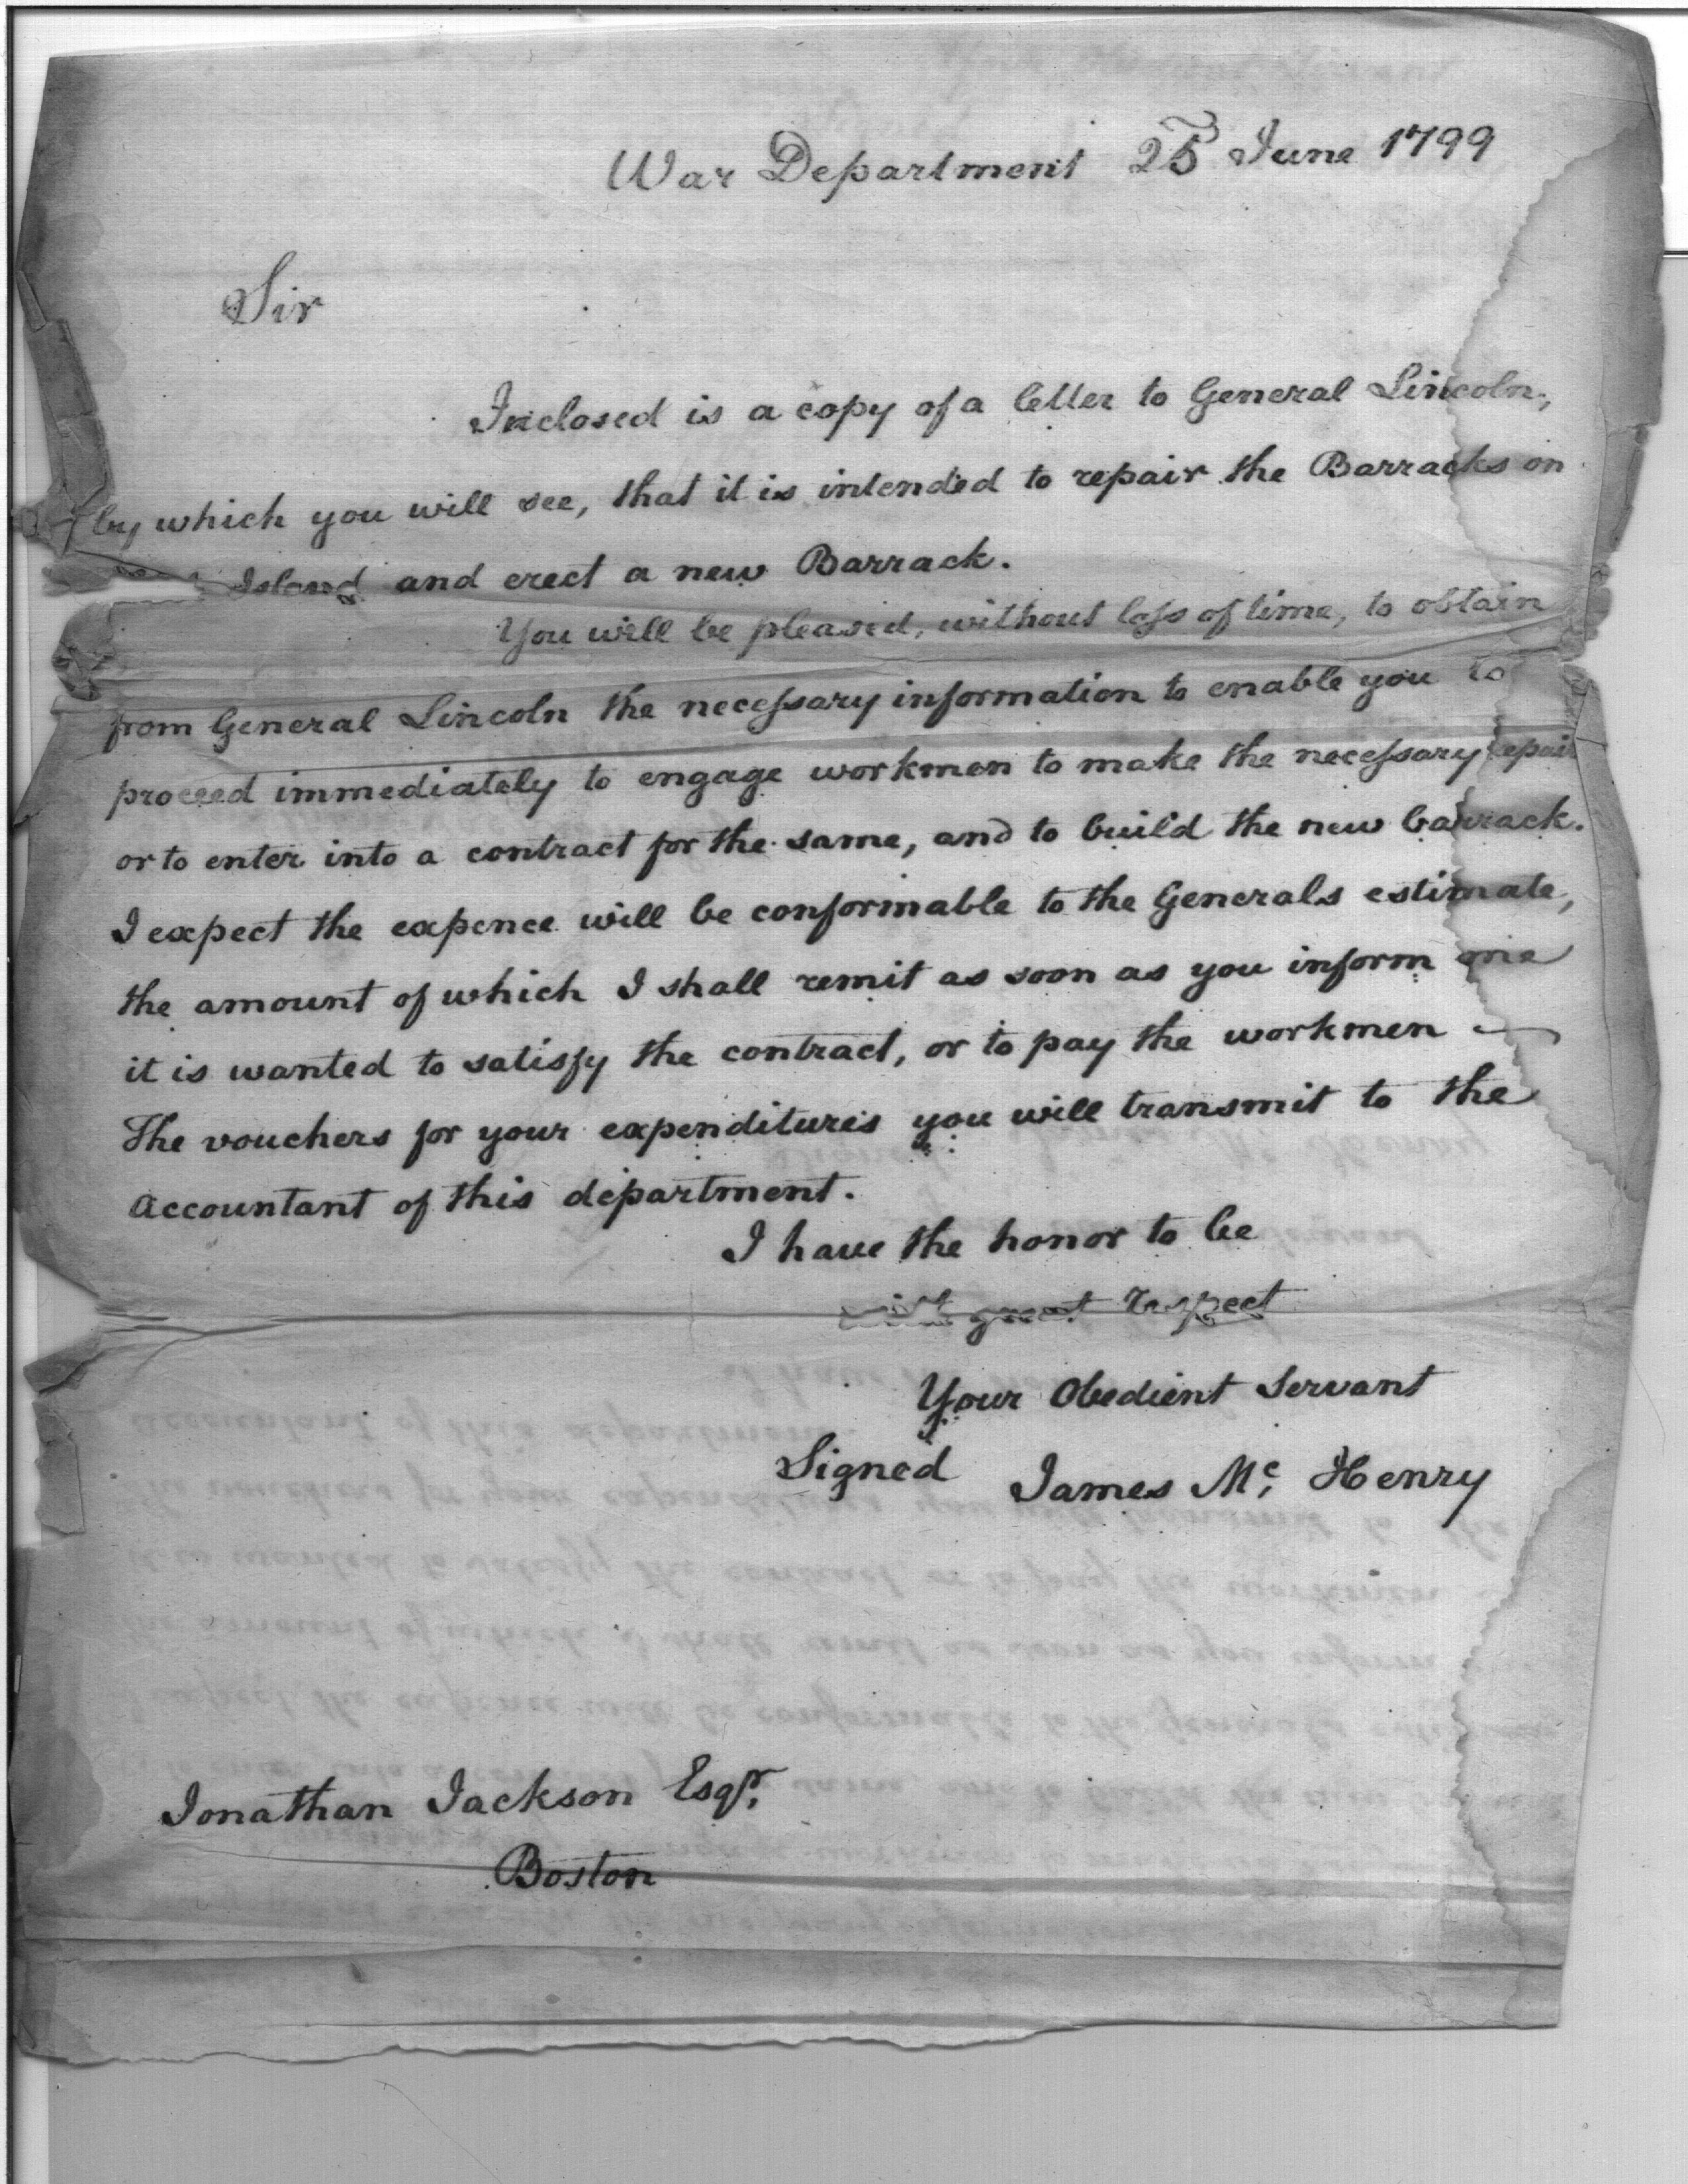 War Department 25 June 1799
Sir
Inclosed is a copy of a letter to General Lincoln,
by which you will see, that it is intended to repair the Barracks on
Island and erect a new Barrack.
You will be pleased, without loss of time, to obtain
from General Lincoln the necessary information to enable you to
proceed immediately to engage workmen to make the necessary repair
or to enter into a contract for the same, and to build the new barrack.
I expect the expence will be conformable to the Generals estimate,
the amount of which I shall remit as soon as you inform me
it is wanted to satisfy the contract, or to pay the workmen —
The vouchers for your expenditures you will transmit to the
Accountant of this department.
I have the honor to be
with great respect
Your Obedient Servant
Signed James Mc. Henry
Jonathan Jackson Esqr.
Boston